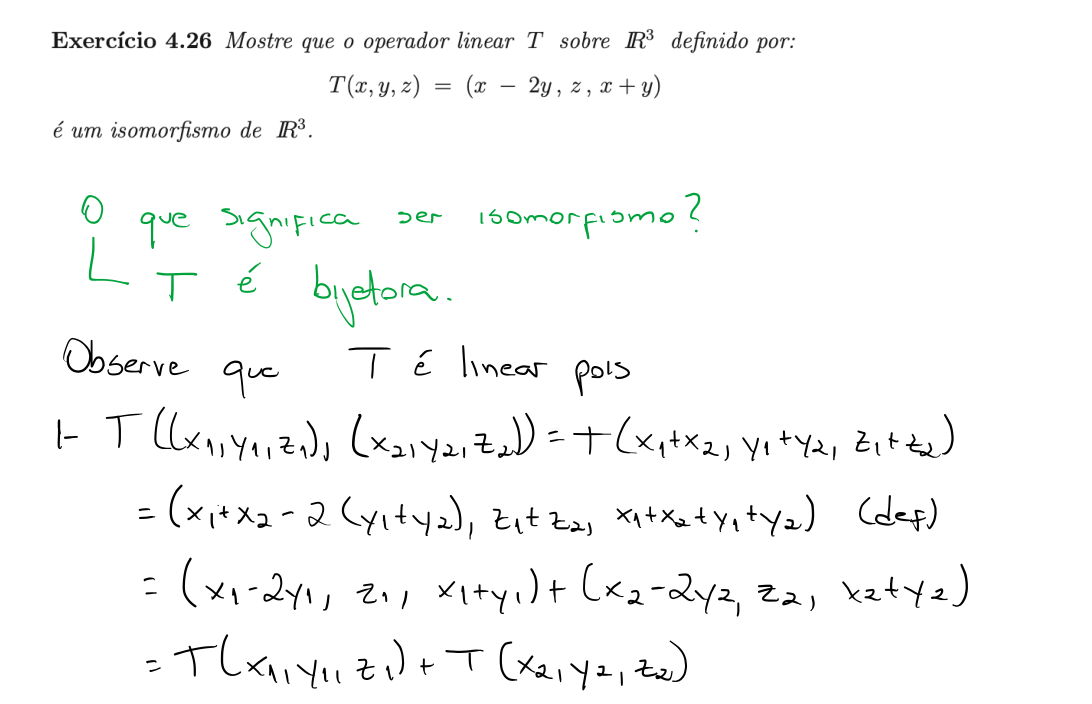 Exercício 4.26 Mostre que o operador linear T sobre ℝ³ definido por:
T(x, y, z) = (x − 2y , z , x + y)
é um isomorfismo de ℝ³.
O que significa ser isomorfismo?
T é bijetora.
Observe que T é linear pois
1- T((x₁, y₁, z₁), (x₂, y₂, z₂)) = T(x₁+x₂, y₁+y₂, z₁+z₂)
= (x₁+x₂ - 2(y₁+y₂), z₁+z₂, x₁+x₂+y₁+y₂) (def)
= (x₁-2y₁, z₁, x₁+y₁) + (x₂-2y₂, z₂, x₂+y₂)
= T(x₁, y₁, z₁) + T(x₂, y₂, z₂)